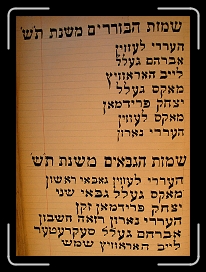 שמות הבוררים משנת תש"
העררי לעווין
אברהם געלל
לייב האראוויץ
מאקס געלל
יצחק פרידמאן
מאקס לעווין
העררי נארון
שמות הגבאים משנת תש"
העררי לעווין גבאי ראשון
מאקס געלל גבאי שני
יצחק פרידמאן זקן
העררי נארון רואה חשבון
אברהם געלל סעקרעטער
לייב האראוויץ שמש